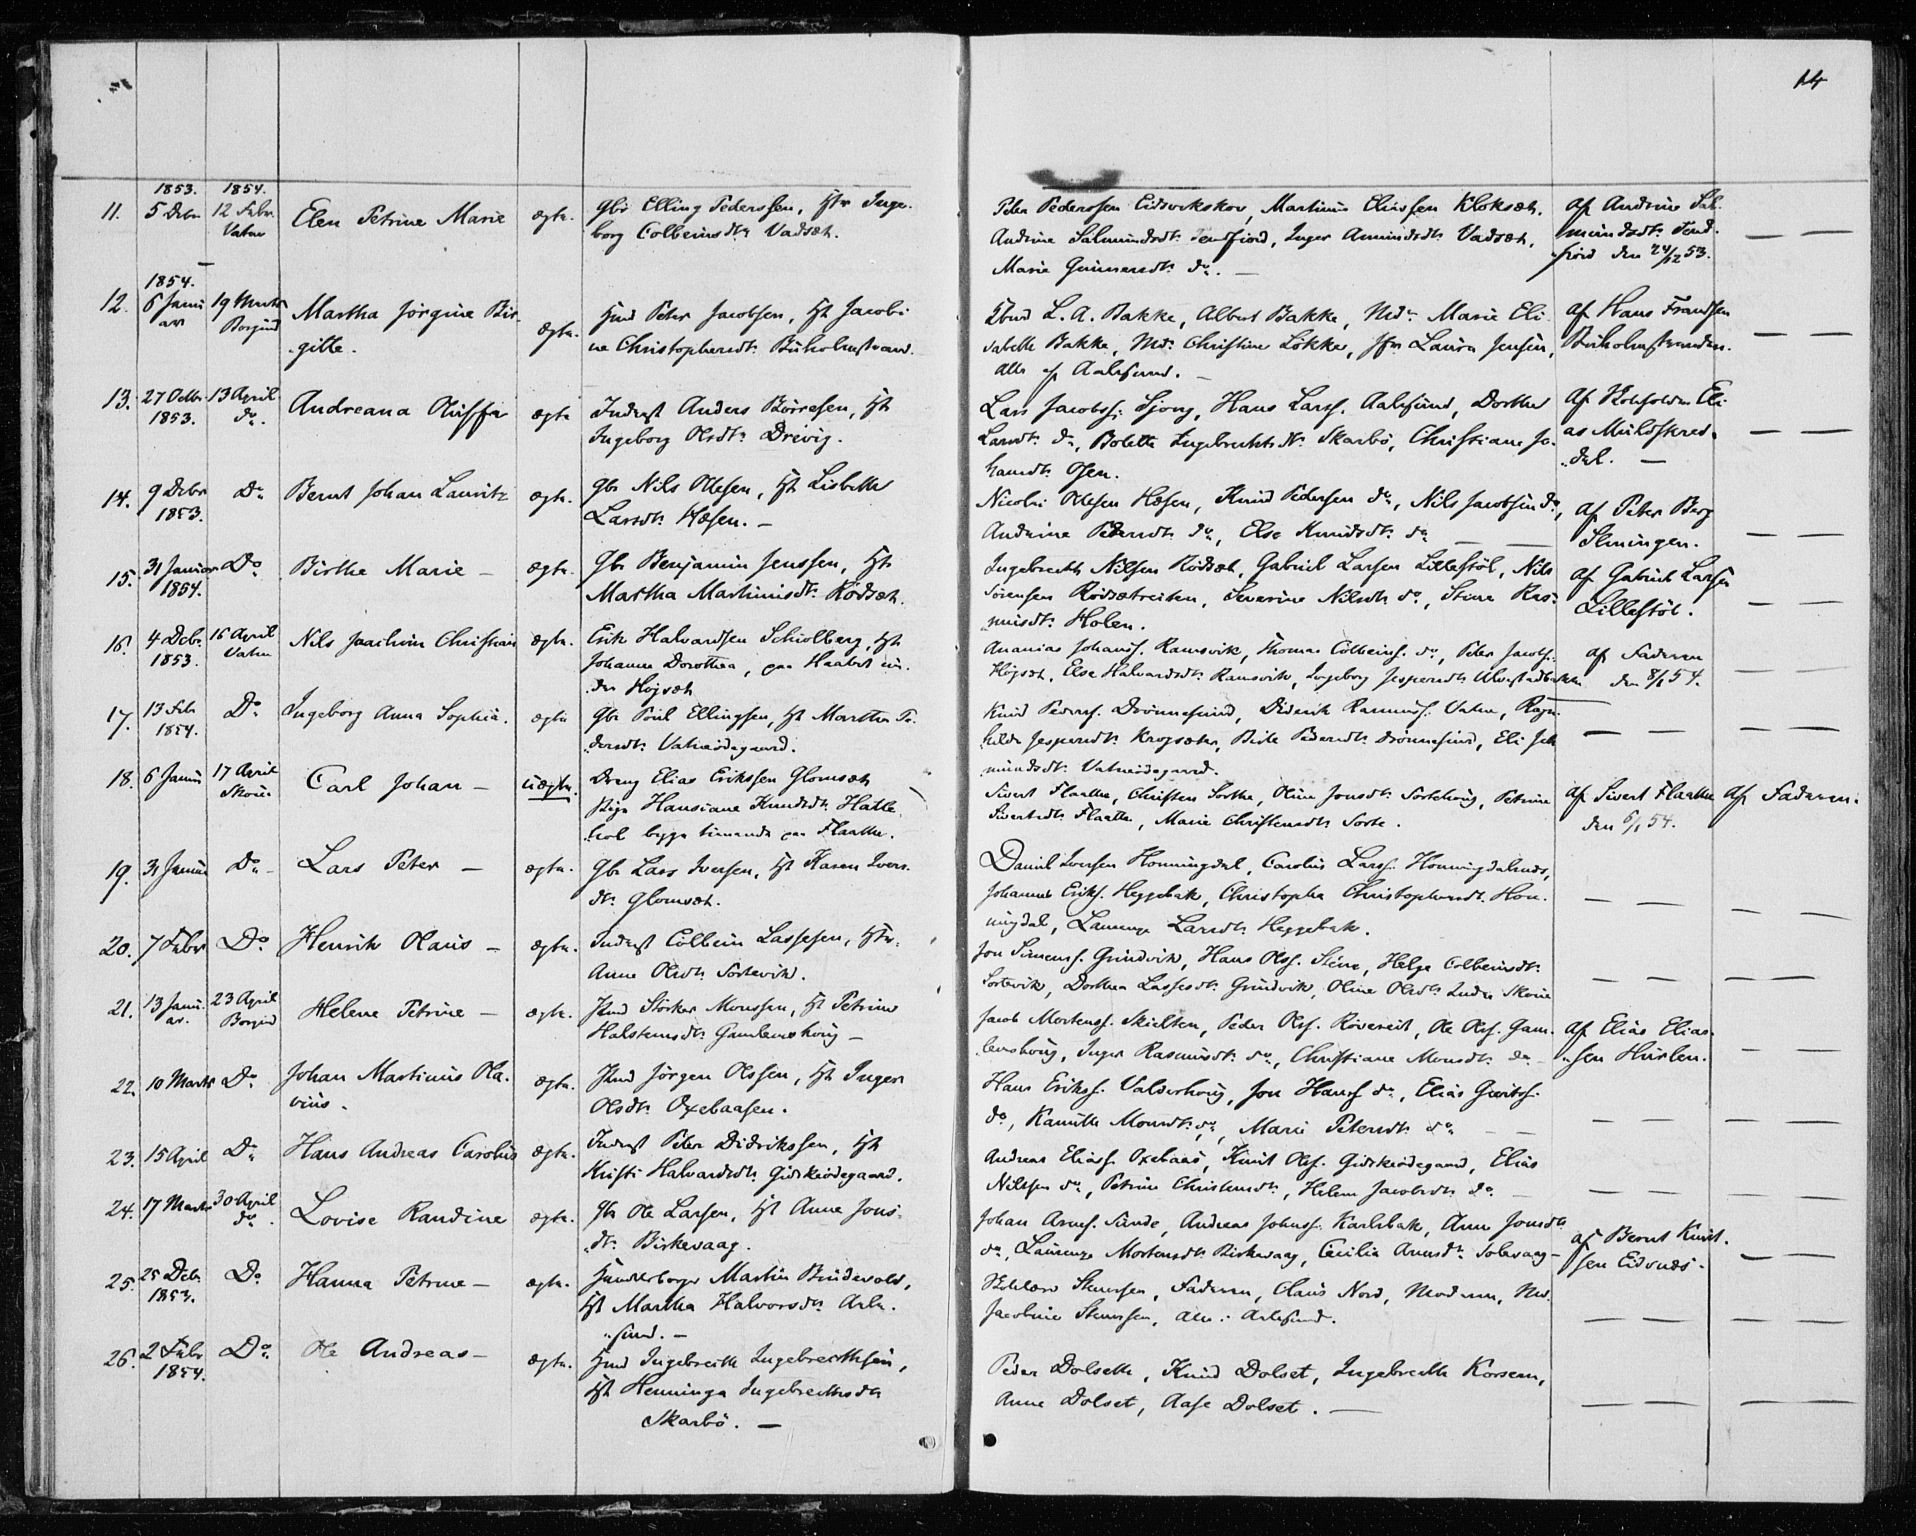 14
1853. 1854.
11. 5 Debr 12 Febr. Vatne Elen Petrine Marie ægte. Gbr Elling Pederssen, Hstr Inge-
borg Colbeinsdtr Vadset.
Peter Pederssen Eidsvikskor, Martinus Eliassen Kloksæt,
Andrine Salmundsdtr Tendfiord, Inger Amundsdtr Vadset,
Marie Gunnersdtr do. —
af Andrine Sal-
mundsdtr Tend-
fiord den 24/12 53. — —
1854.
12. 6 Janu-
ar 19 Marts Borgund Martha Jørgine Bir-
gitte. ægte. Hmd Peter Jacobsen, Hst Jacobi-
ne Christophersdtr Buholmstrand.
L. A. Bakke, Albert Bakke, Md. Marie Eli-
sabeth Bakke, Md. Christine Løkke, Jfr Laura Jensen,
alle af Aalesund. —
af Hans Frandsen
Buholmstranden. — —
13. 27 Octbr
1853. 13 April
do. Andreana Oluffa ægte Inderst Anders Børresen, Hst
Ingeborg Olsdtr Drevig.
Lars Jacobss. Sjong, Hans Larss. Aalesund, Dorthe
Larsdtr do, Bolette Ingebrechtsdtr Skarbø, Christiane Jo-
hansdtr Osen.
af Skoleholder Eli-
as Muldskred-
dal. — — —
14. 9 Debr
1853. Do Bernt Johan Lauritz ægte. Gbr Nils Olesen, Hst Lisbeth
Larsdtr Hæsen. —
Nicolai Olesen Hæsen, Knud Pedersen do, Nils Jacobsen do,
Andrine Pedersdtr do, Else Knudsdtr do — —
af Peter Berg
Slyningen. — —
15. 31 Januar
1854. Do Birthe Marie — ægte. Gbr Benjamin Jenssen, Hst
Martha Martinusdtr Rødset.
Ingebrecth Nilsen Rødset, Gabriel Larsen Lillestøl, Nils
Sørensen Rødsætreiten, Severine Nilsdtr do, Stine Ras-
musdtr Holen.
af Gabriel Larsen
Lillestøl. — —
16. 4 Debr.
1853. 16 April
Vatne Nils Joachim Christian ægte. Erik Halvardsen Schiolberg, Hst
Johanne Dorothea, paa Haabet un-
der Højsæt
Ananias Johanss. Ramsvik, Thomas Colbeins. do, Peter Jacobs.
Højsæt, Else Halvardsdtr Ramsvik, Ingeborg Jespersdtr Alvestadbakken
af Faderen
den 8/1 54. — —
17. 13 Febr
1854. Do Ingeborg Anna Sophia. ægte Gbr Poul Ellingsen, Hst Marthe Pe-
dersdtr Vatneødegaard.
Knud Peders. Drønnesund, Diderik Rasmuss. Vatne, Ragn-
hilde Jespersdtr Krogsæter, Birte Pedersdtr Drønnesund, Eli Sal-
mundsdtr Vatneødegaard. — — — —
18. 6 Januar 17 April
Skoue Carl Johan — uægte. Dreng Elias Erikssen Glomsæt
Pige Hansiane Knudsdtr Hatle-
hol begge tienende paa Flaathe.
Sivert Flaathe, Christen Sorthe, Oline Jonsdtr Sortehoug, Petrine
Sivertsdtr Flaathe, Marie Christensdtr Sorte.
af Sivert Flaathe
den 6/1 54. af Faderen.
19. 31 Januar Do — Lars Peter — ægte. Gbr Lars Iversen, Hst Karen Ivers-
dtr Glomset.
Daniel Iversen Honningdal, Carolus Larss. Honningdalsnes,
Johannes Eriks. Heggebak, Christopha Christophersdtr Hon-
ningdal, Laurenze Larsdtr Heggebak. — — — —
20. 7 Febr Do Henrik Olaus — ægte. Inderst Colbein Lassesen, Hstr.
Anne Olsdtr Sortevik.
Jon Simens. Grindvik, Hans Olss. Stene, Helge Colbeinsdtr
Sortevik, Dorthea Lassesdtr Grindvik, Oline Olsdtr Indre Skoue — — — —
21. 13 Janu-
ar. 23 April
Borgund Helene Petrine — ægte. Hmd Størker Monssen, Hst Petrine
Halstensdtr Gamlemshoug —
Jacob Mortenss. Skielten, Peder Ols. Røvereit, Ole Ols. Gam-
lemshoug, Inger Rasmusdtr do, Christiane Monsdtr do —
af Elias Elias-
sen Hurlen. — —
22. 10 Marts Do Johan Martinus Ola-
vius. ægte. Hmd Jørgen Olssen, Hst Inger
Olsdtr Oxebaasen.
Hans Erikss. Valderhoug, Jon Hans. do, Elias Gjerts.
do, Kamille Monsdtr do, Marie Petersdtr do — — — — — —
23. 15 April Do Hans Andreas Carolus ægte. Inderst Peter Didrikssen, Hst
Kirsti Halvardsdtr Giskeødegaard.
Andreas Eliass. Oxebaas, Knut Ols. Giskeødegaard, Elias
Nilssen do, Petrine Christensdtr, Helene Jacobsdtr do. — — — — —
24. 17 Marts 30 April
do. Lovise Randine ægte. Gbr Ole Larsen, Hst Anne Jons-
dtr Birkevaag.
Johan Arnes. Sunde, Andreas Johns. Karlsbak, Anne Jonsdtr
do, Laurenze Mortensdtr Birkevaag, Cecilie Arnesdtr Solevaag —
af Bernt Knut-
sen Eidsnes. — —
25. 25 Debr.
1853. Do Hanna Petrine — ægte. Handelsborger Martin Brudevold,
Hst Martha Halvorsdtr Aale-
sund. —
Skolelærer Stenersen, Faderen, Claus Nord, Moderen, Md.
Jacobine Stenersen, alle i Aalesund. — — — —
26. 2 Febr
1854. Do Ole Andreas — ægte. Hmd Ingebrecth Ingebrecthsen,
Hst Henninga Ingebrecthsdtr
Skarbø. —
Peder Dolseth, Knud Dolset, Ingebrecth Korsen,
Anne Dolset, Aase Dolset. — — — — —